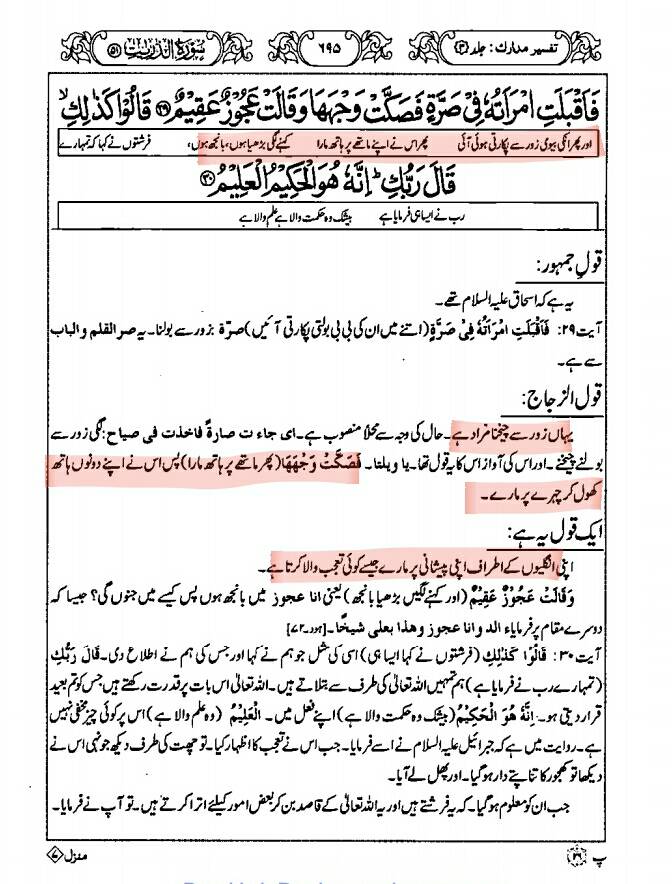 تفسیر مدارک : جلد {۳} ۶۹۵ سورۃ الذریت {۵۱}
فَاَقْبَلَتِ امْرَاَتُهٗ فِیْ صَرَّةٍ فَصَكَّتْ وَجْهَهَا وَقَالَتْ عَجُوْزٌ عَقِیْمٌ ﴿۲۹﴾ قَالُوْا كَذٰلِكِ ۙ
اور پھر انکی بیوی زور سے پکارتی ہوئی آئی پھر اس نے اپنے ماتھے پر ہاتھ مارا کہنے لگی بڑھیا ہوں، بانجھ ہوں، فرشتوں نے کہا کہ تمہارے
قَالَ رَبُّكِ ؕ اِنَّهٗ هُوَ الْحَكِیْمُ الْعَلِیْمُ ﴿۳۰﴾
رب نے ایسا ہی فرمایا ہے بیشک وہ حکمت والا ہے علم والا ہے
قول جمہور:
یہ ہے کہ اسحاق علیہ السلام تھے۔
آیت ۲۹: فَاَقْبَلَتِ امْرَاَتُهٗ فِیْ صَرَّةٍ (اتنے میں ان کی بی بی بولتی پکارتی آئیں) صرّة بزور سے بولنا۔ یہ صر القلم و الباب
سے ہے۔
قول الزجاج:
یہاں زور سے چیخنا مراد ہے۔ حال کی وجہ سے محلاً منصوب ہے۔ ای جاء ت صارة فاخذت فی صیاح: لگی زور سے
بولنے چیخنے۔ اور اس کی آواز اس کا یہ قول تھا۔ یا ویلتا۔ فَصَكَّتْ وَجْهَهَا (پھر ماتھے پر ہاتھ مارا) پس اس نے اپنے دونوں ہاتھ
کھول کر چہرے پر مارے۔
ایک قول یہ ہے:
اپنی انگلیوں کے اطراف اپنی پیشانی پر مارے جیسے کوئی تعجب والا کرتا ہے۔
وَقَالَتْ عَجُوْزٌ عَقِیْمٌ (اور کہنے لگیں بڑھیا بانجھ) یعنی انا عجوز میں بانجھ ہوں پس کیسے میں جنوں گی؟ جیسا کہ
دوسرے مقام پر فرمایاء الد وانا عجوز وهذا بعلی شیخًا۔ [ہود۔۷۲]
آیت ۳۰: قَالُوْا كَذٰلِكِ (فرشتوں نے کہا ایسا ہی) اسی کی مثل جو ہم نے کہا اور جس کی ہم نے اطلاع دی۔ قَالَ رَبُّكِ
(تمہارے رب نے فرمایا ہے) ہم تمہیں اللہ تعالیٰ کی طرف سے بتلاتے ہیں۔ اللہ تعالیٰ اس بات پر قدرت رکھتے ہیں جس کو تم بعید
قرار دیتی ہو۔ اِنَّهٗ هُوَ الْحَكِیْمُ (بیشک وہ حکمت والا ہے) اپنے فعل میں۔ الْعَلِیْمُ (وہ علم والا ہے) اس پر کوئی چیز مخفی نہیں
ہے۔ روایت میں ہے کہ جبرائیل علیہ السلام نے اسے فرمایا۔ جب اس نے تعجب کا اظہار کیا۔ تو چھت کی طرف دیکھ جونہی اس نے
دیکھا تو کھجور کا تنا پتے دار ہو گیا۔ اور پھل لے آیا۔
جب ان کو معلوم ہو گیا۔ کہ یہ فرشتے ہیں اور یہ اللہ تعالیٰ کے قاصد بن کر بعض امور کیلئے اترا کرتے ہیں۔ تو آپ نے فرمایا۔
پ ﴿۲۶﴾ منزل ﴿۷﴾